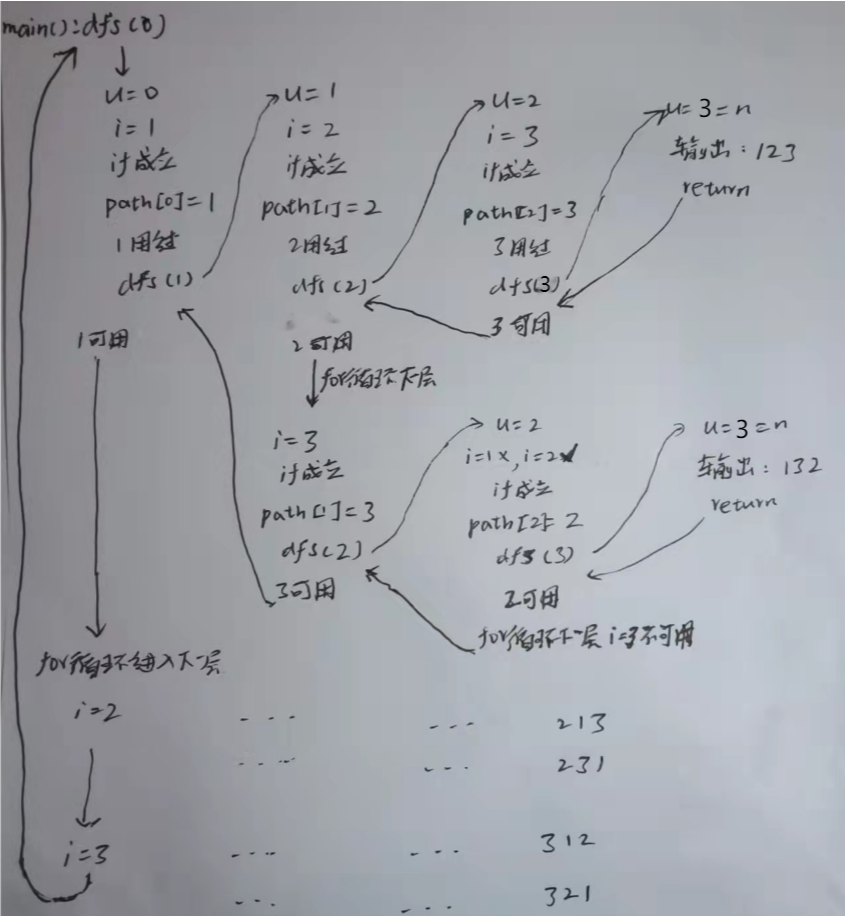 main():dfs(0)
u=0
i=1
if成立
path[0]=1
1用过
dfs(1)
1可用
for循环进入下一层
i=2
i=3
u=1
i=2
if成立
path[1]=2
2用过
dfs(2)
2可用
for循环下一层
i=3
if成立
path[1]=3
dfs(2)
3可用
u=2
i=3
if成立
path[2]=3
3用过
dfs(3)
3可用
u=3=n
输出:123
return
u=2
i=1×,i=2✓
if成立
path[2]=2
dfs(3)
2可用
for循环下一层 i=3不可用
u=3=n
输出:132
return
---- --- 213
---- --- 231
---- --- 312
--- --- 321